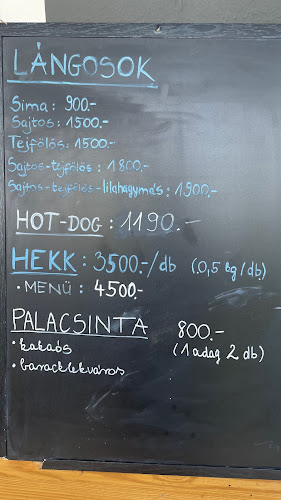 LÁNGOSOK
Sima: 900.-
Sajtos: 1500.-
Tejfölös: 1500.-
Sajtos-tejfölös: 1800.-
Sajtos-tejfölös-lilahagymás: 1900.-
HOT-DOG: 1190.-
HEKK: 3500.-/db (0,5 kg/db)
• MENÜ: 4500.-
PALACSINTA 800.-
• kakaós (1 adag 2 db)
• baracklekváros